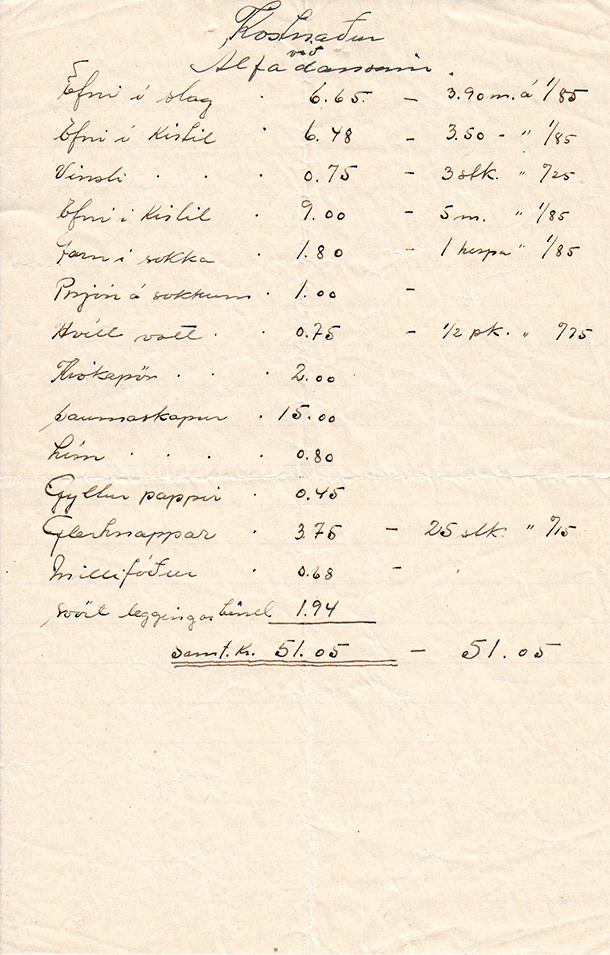 Kostnaður
við
Álfadansinn.
Efni í slag · 6.65. – 3.90 m. á 1/85
Efni í Kistil · 6.48 – 3.50 - " 1/85
Vinsli · · · 0.75 – 3 stk. " 0/25
Efni í Kistil · 9.00 – 5 m. " 1/85
Garn í sokka · 1.80 – 1 hespa " 1/85
Prjón á sokkum · 1.00 –
Hvítt vatt · · 0.75 – 1/2 pk. "
· · · 2.00
Saumaskapur · 15.00
Lím · · · · 0.80
Gyllur pappír · 0.45
Glerhnappar · 3.75 – 25 stk. " 0/15
Millifóður · 0.68 –
svört leggingar 1.94
Samt. Kr. 51.05 – 51.05